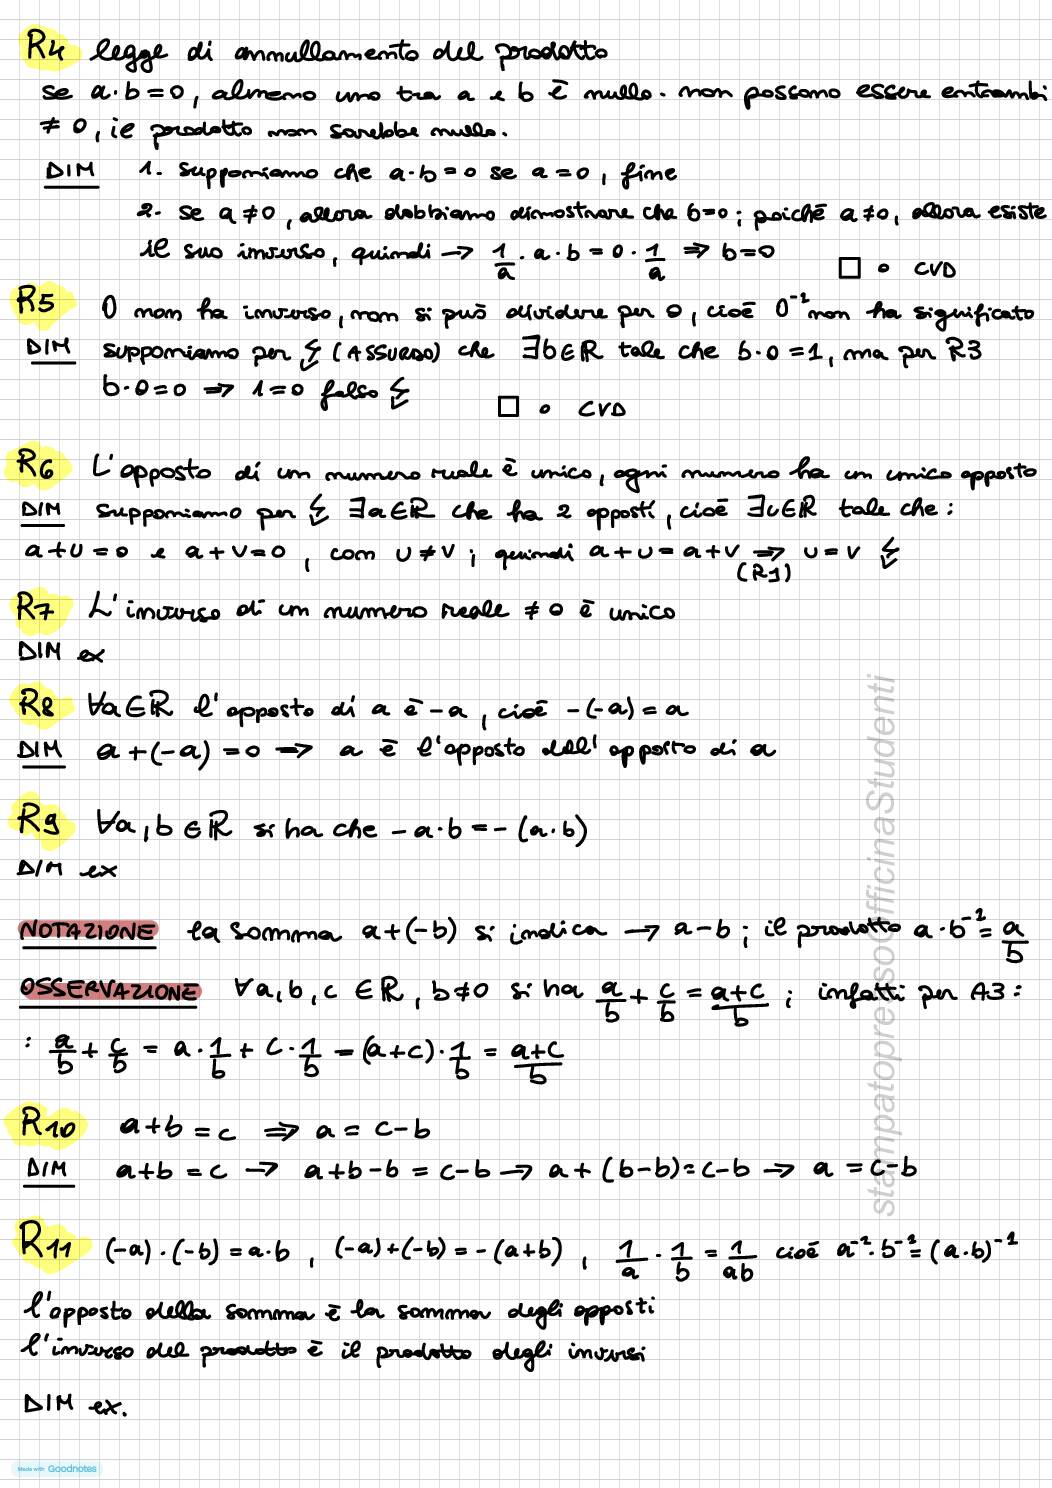 R4 legge di annullamento del prodotto
se a·b=0, almeno uno tra a e b è nullo. non possono essere entrambi
≠ 0, il prodotto non sarebbe nullo.
DIM 1. supponiamo che a·b=0 se a=0, fine
2. se a≠0, allora dobbiamo dimostrare che b=0; poiché a≠0, allora esiste
il suo inverso, quindi → 1/a · a · b = 0 · 1/a ⇒ b=0 □ o CVD
R5 0 non ha inverso, non si può dividere per 0, cioè 0⁻¹ non ha significato
DIM supponiamo per ↯ (ASSURDO) che ∃b∈ℝ tale che b·0=1, ma per R3
b·0=0 ⇒ 1=0 falso ↯ □ o CVD
R6 L'opposto di un numero reale è unico, ogni numero ha un unico opposto
DIM supponiamo per ↯ ∃a∈ℝ che ha 2 opposti, cioè ∃u∈ℝ tale che:
a+u=0 e a+v=0, con u≠v; quindi a+u=a+v ⇒ u=v ↯
(R1)
R7 L'inverso di un numero reale ≠ 0 è unico
DIM ex
R8 ∀a∈ℝ l'opposto di a è -a, cioè -(-a)=a
DIM a+(-a)=0 ⇒ a è l'opposto dell'opposto di a
R9 ∀a,b∈ℝ si ha che -a·b=-(a·b)
DIM ex
NOTAZIONE la somma a+(-b) si indica → a-b; il prodotto a·b⁻¹=a/b
OSSERVAZIONE ∀a,b,c ∈ℝ, b≠0 si ha a/b + c/b = a+c/b; infatti per A3:
: a/b + c/b = a·1/b + c·1/b = (a+c)·1/b = a+c/b
R10 a+b=c ⇒ a=c-b
DIM a+b=c → a+b-b=c-b → a+(b-b)=c-b → a=c-b
R11 (-a)·(-b)=a·b, (-a)+(-b)=-(a+b), 1/a · 1/b = 1/ab cioè a⁻¹·b⁻¹=(a·b)⁻¹
l'opposto della somma è la somma degli opposti
l'inverso del prodotto è il prodotto degli inversi
DIM ex.
stampatopressoOfficinaStudenti
Made with Goodnotes